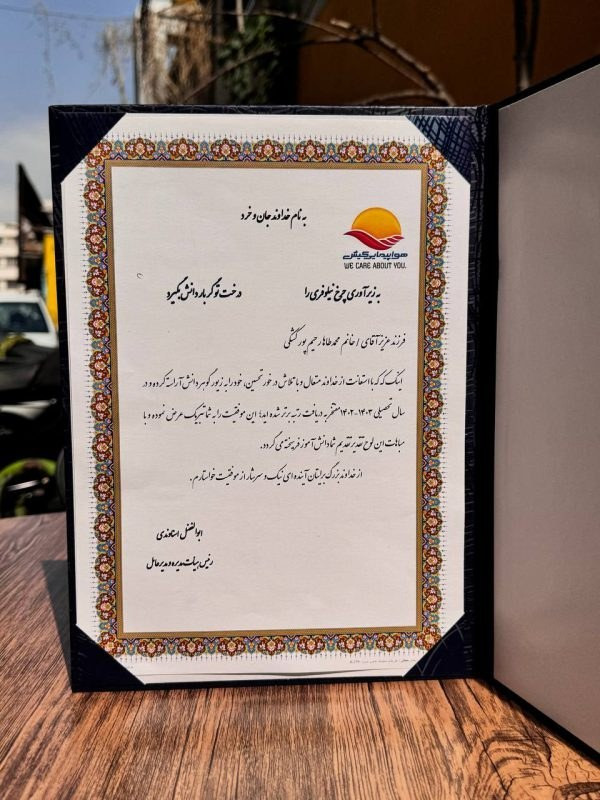 به نام خداوند جان و خرد
هواپیمایی کیش
WE CARE ABOUT YOU.
درخت تو گر بار دانش بگیرد به زیر آوری چرخ نیلوفری را
فرزند عزیز آقای / خانم محمدطاها رحیم پور کشکی
اینک که با استعانت از خداوند متعال و با تلاش در خور تحسین، خود را به زیور گوهر دانش آراسته کرده و در
سال تحصیلی ۱۴۰۳-۱۴۰۲ مفتخر به دریافت رتبه برتر شده اید؛ این موفقیت را به شما تبریک عرض نموده و با
مباهات این لوح تقدیر تقدیم شما دانش آموز فرهیخته می گردد.
از خداوند بزرگ برایتان آینده ای نیک و سرشار از موفقیت خواستارم.
ابوالفضل استاوندی
رئیس هیات مدیره و مدیرعامل